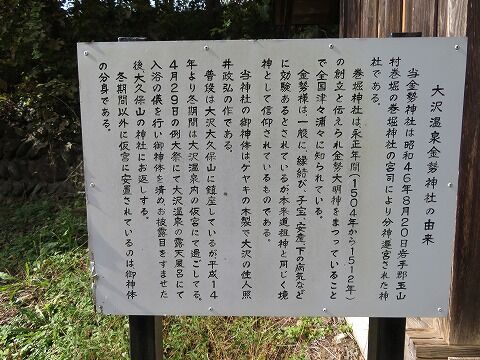 大沢温泉金勢神社の由来
当金勢神社は昭和46年8月20日岩手郡玉山
村巻堀の巻堀神社の宮司により分神遷宮された神
社である。
巻堀神社は永正年間(1504年から1512年)
の創立と伝えられ金勢大明神をまつっていること
で全国津々浦々に知られている。
金勢様は、一般に、縁結び、子宝、安産、下の病気など
に効験あるとされているが本来道祖神と同じく境
神として信仰されているものである。
当神社の御神体はケヤキの木製で大沢の住人照
井政弘の作である。
普段は大沢大久保山に鎮座しているが平成14
年より冬期間は大沢温泉内の仮宮にて過ごしてる。
4月29日の例大祭にて大沢温泉の露天風呂にて
入浴の儀を行い御神体を清め、お披露目をすませた
後、大久保山の神社にお返しする。
冬期間以外に仮宮に安置されているのは御神体
の分身である。